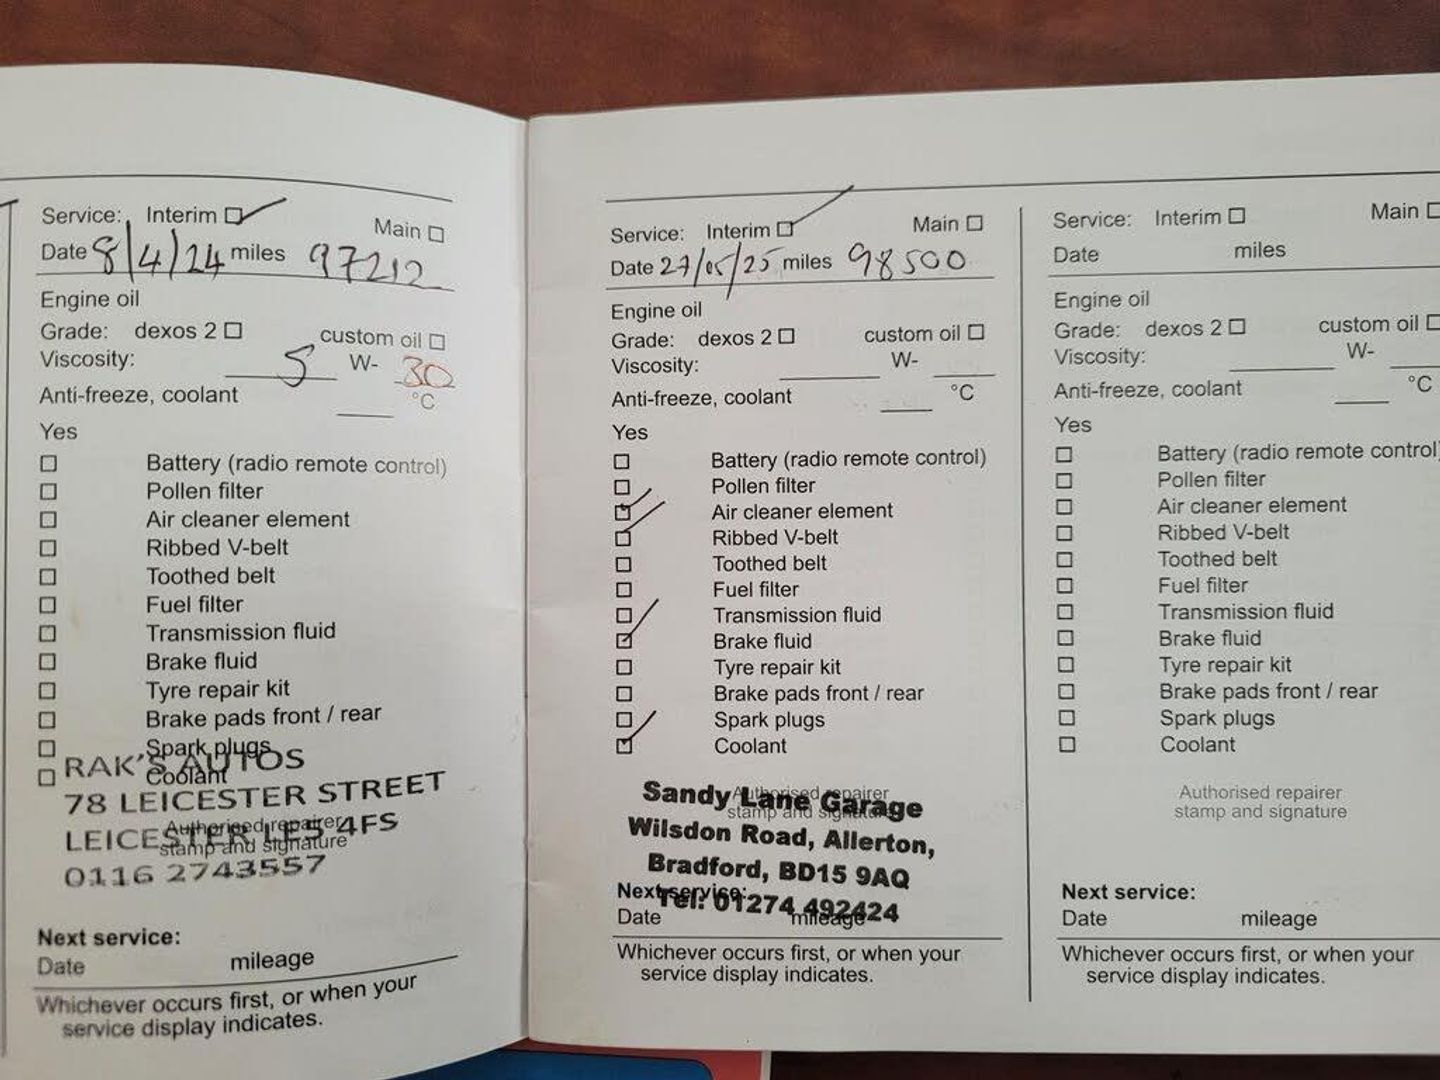 Service: Interim
Main
Date 8/4/24 miles 97212
Engine oil
Grade: dexos 2
custom oil
Viscosity: 5 W- 30
Anti-freeze, coolant °C
Yes
Battery (radio remote control)
Pollen filter
Air cleaner element
Ribbed V-belt
Toothed belt
Fuel filter
Transmission fluid
Brake fluid
Tyre repair kit
Brake pads front / rear
Spark plugs
Coolant
RAK'S AUTOS
78 LEICESTER STREET
LEICESTER LE5 4FS
0116 2743557
Authorised repairer
stamp and signature
Next service:
Date mileage
Whichever occurs first, or when your
service display indicates.
Service: Interim Main
Date 27/05/25 miles 98500
Engine oil
Grade: dexos 2 custom oil
Viscosity: W-
Anti-freeze, coolant °C
Yes
Battery (radio remote control)
Pollen filter
Air cleaner element
Ribbed V-belt
Toothed belt
Fuel filter
Transmission fluid
Brake fluid
Tyre repair kit
Brake pads front / rear
Spark plugs
Coolant
Authorised repairer
stamp and signature
Sandy Lane Garage
Wilsdon Road, Allerton,
Bradford, BD15 9AQ
Tel: 01274 492424
Next service:
Date mileage
Whichever occurs first, or when your
service display indicates.
Service: Interim Main
Date miles
Engine oil
Grade: dexos 2 custom oil
Viscosity: W-
Anti-freeze, coolant °C
Yes
Battery (radio remote control)
Pollen filter
Air cleaner element
Ribbed V-belt
Toothed belt
Fuel filter
Transmission fluid
Brake fluid
Tyre repair kit
Brake pads front / rear
Spark plugs
Coolant
Authorised repairer
stamp and signature
Next service:
Date mileage
Whichever occurs first, or when your
service display indicates.